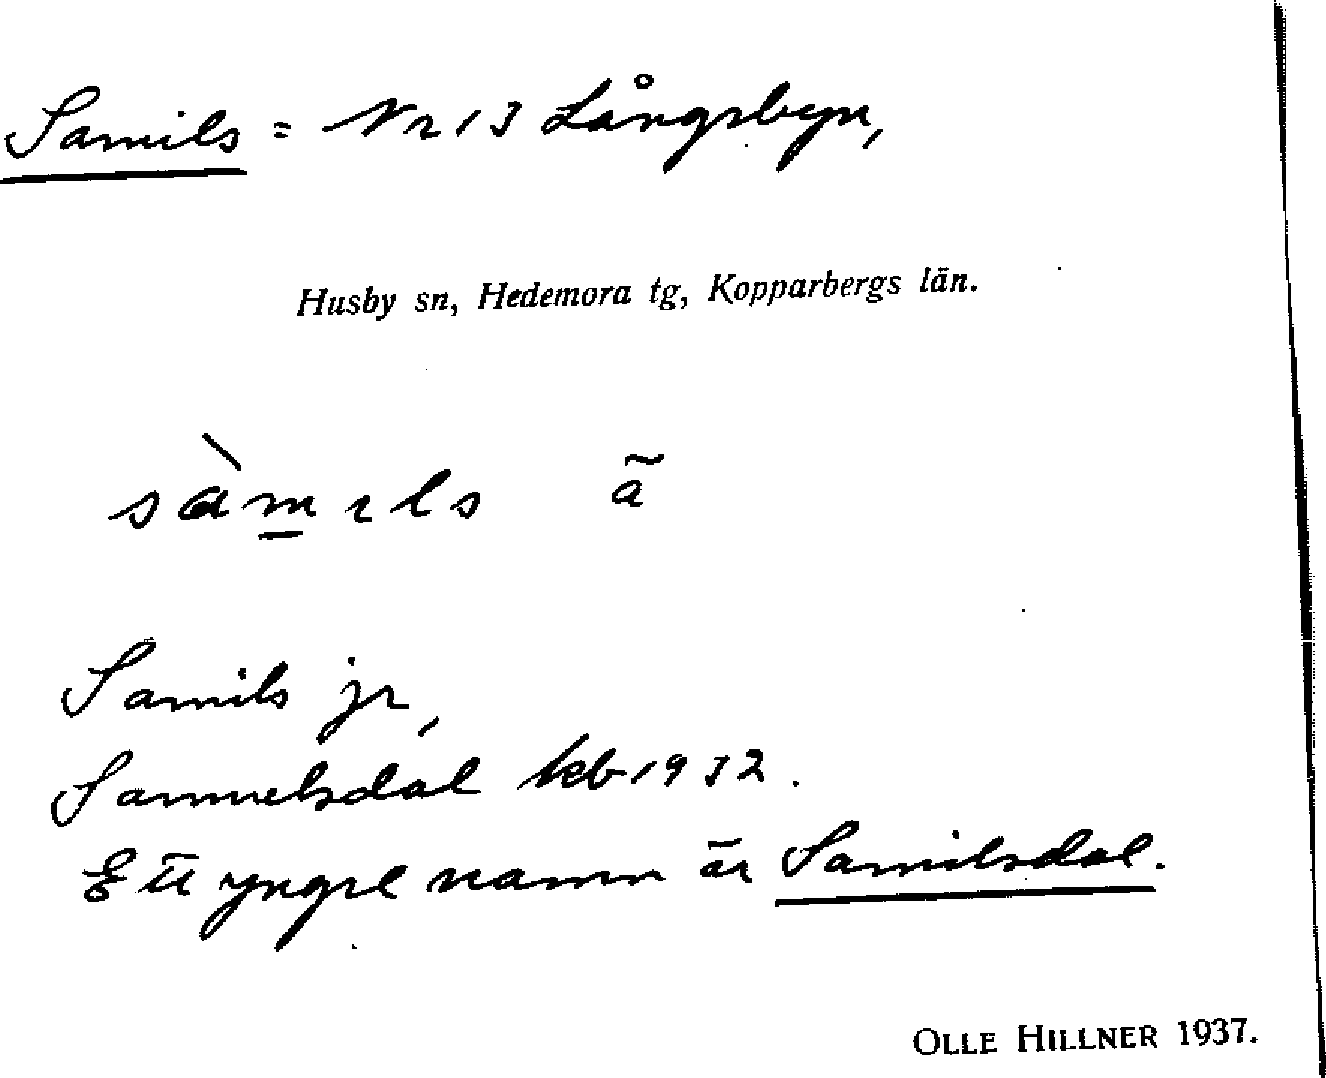 Samils = Nr 13 Långsbyn,
Husby sn, Hedemora tg, Kopparbergs län.
sàmɩls ã
Samils jr,
Samuelsdal kb 1932.
Ett yngre namn är Samilsdal.
OLLE HILLNER 1937.